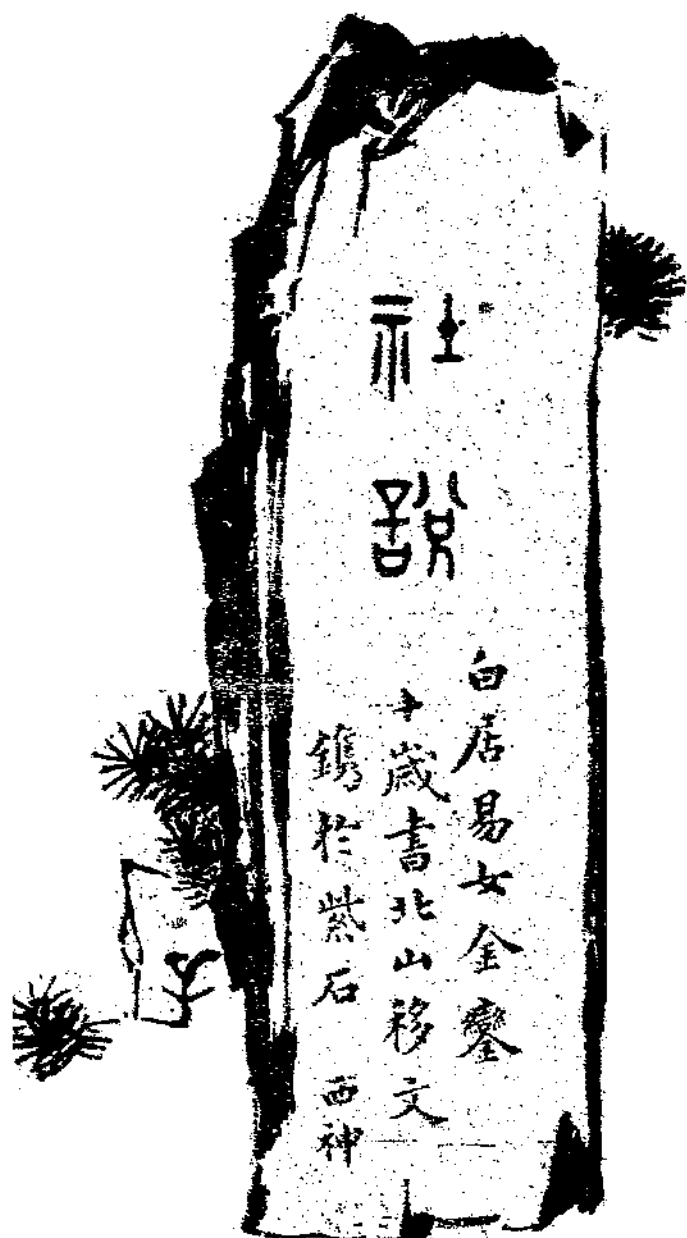 社說
白居易女金鑾
十歲書北山移文
鐫於紫石 西神